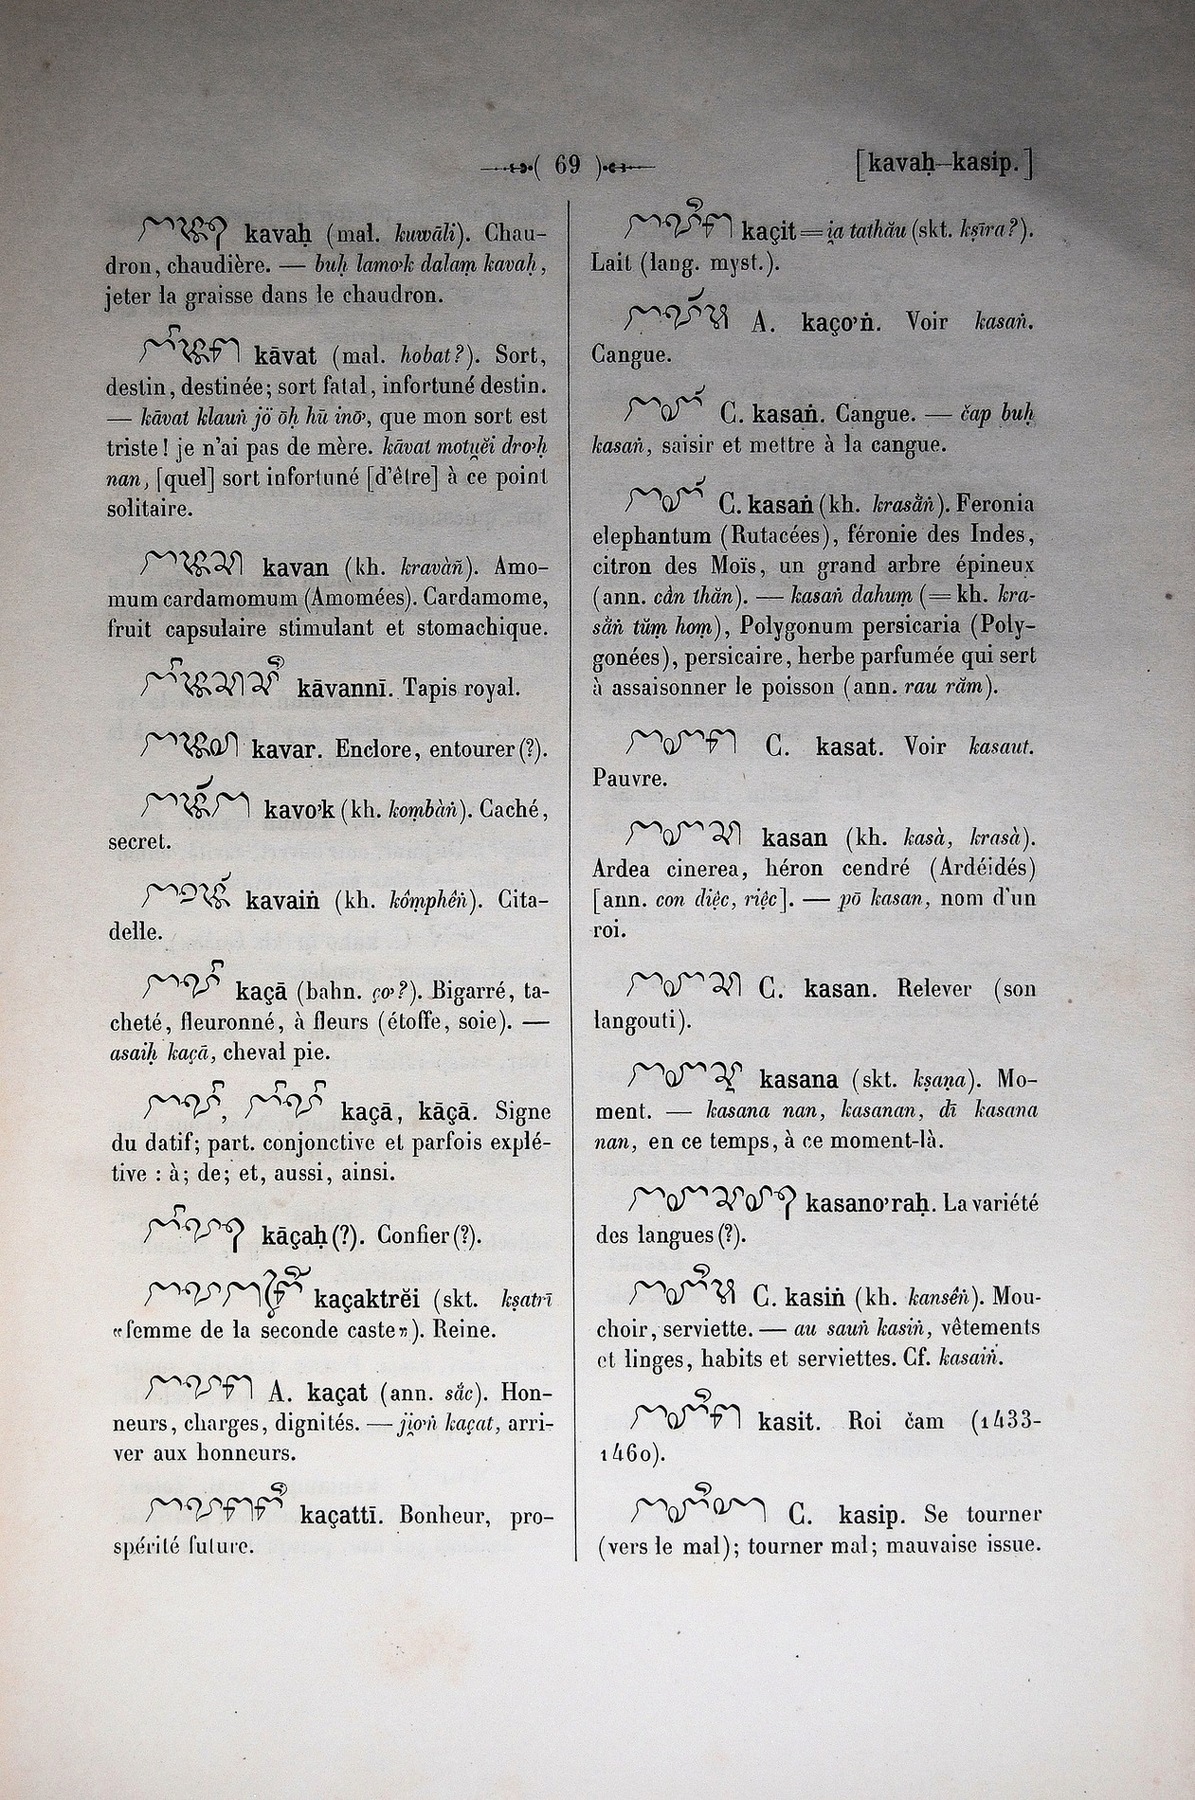 ( 69 )
[kavaḥ—kasip.]
kavaḥ (mal. kuwāli). Chau-
dron, chaudière. — buḥ lamo̓k dalaṃ kavaḥ,
jeter la graisse dans le chaudron.
kāvat (mal. hobat?). Sort,
destin, destinée; sort fatal, infortuné destin.
— kāvat klauṅ jö̆ ōḥ hū inō̓, que mon sort est
triste! je n'ai pas de mère. kāvat motṷĕi dro̓ḥ
nan, [quel] sort infortuné [d'être] à ce point
solitaire.
kavan (kh. kravàñ). Amo-
mum cardamomum (Amomées). Cardamome,
fruit capsulaire stimulant et stomachique.
kāvannī. Tapis royal.
kavar. Enclore, entourer (?).
kavo̓k (kh. koṃbàṅ). Caché,
secret.
kavaiṅ (kh. kôṃphêṅ). Cita-
delle.
kaçā (bahn. ço̓?). Bigarré, ta-
cheté, fleuronné, à fleurs (étoffe, soie). —
asaiḥ kaçā, cheval pie.
kaçā, kāçā. Signe
du datif; part. conjonctive et parfois explé-
tive : à; de; et, aussi, ainsi.
kāçaḥ (?). Confier (?).
kaçaktrĕi (skt. kṣatrī
«femme de la seconde caste»). Reine.
A. kaçat (ann. sắc). Hon-
neurs, charges, dignités. — ji̭o̓ṅ kaçat, arri-
ver aux honneurs.
kaçattī. Bonheur, pro-
spérité future.
kaçit = i̭a tathău (skt. kṣīra?).
Lait (lang. myst.).
A. kaço̓ṅ. Voir kasaṅ.
Cangue.
C. kasaṅ. Cangue. — čap buḥ
kasaṅ, saisir et mettre à la cangue.
C. kasaṅ (kh. krasằṅ). Feronia
elephantum (Rutacées), féronie des Indes,
citron des Moïs, un grand arbre épineux
(ann. cần thăn). — kasaṅ dahuṃ (= kh. kra-
sằṅ tŭṃ hoṃ), Polygonum persicaria (Poly-
gonées), persicaire, herbe parfumée qui sert
à assaisonner le poisson (ann. rau răm).
C. kasat. Voir kasaut.
Pauvre.
kasan (kh. kasà, krasà).
Ardea cinerea, héron cendré (Ardéidés)
[ann. con diệc, riệc]. — pō kasan, nom d'un
roi.
C. kasan. Relever (son
langouti).
kasana (skt. kṣaṇa). Mo-
ment. — kasana nan, kasanan, dī kasana
nan, en ce temps, à ce moment-là.
kasano̓raḥ. La variété
des langues (?).
C. kasiṅ (kh. kansêṅ). Mou-
choir, serviette. — au sauṅ kasiṅ, vêtements
et linges, habits et serviettes. Cf. kasaiṅ.
kasit. Roi čam (1433-
1460).
C. kasip. Se tourner
(vers le mal); tourner mal; mauvaise issue.